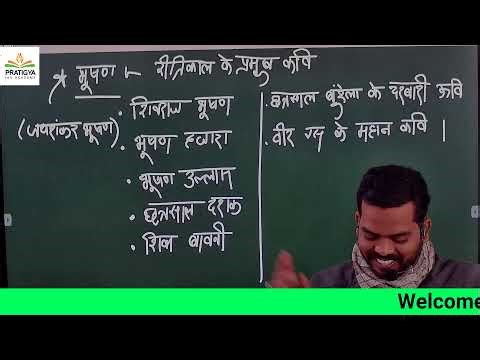 PRATIGYA
IAS ACADEMY
* भूषण :- रीतिकाल के प्रमुख कवि
(जयशंकर भूषण)
• शिवराज भूषण
• भूषण हजारा
• भूषण उल्लास
• छत्रसाल दशक
• शिवा बावनी
• छत्रसाल बुंदेला के दरबारी कवि
• वीर रस के महान कवि |
Welcome